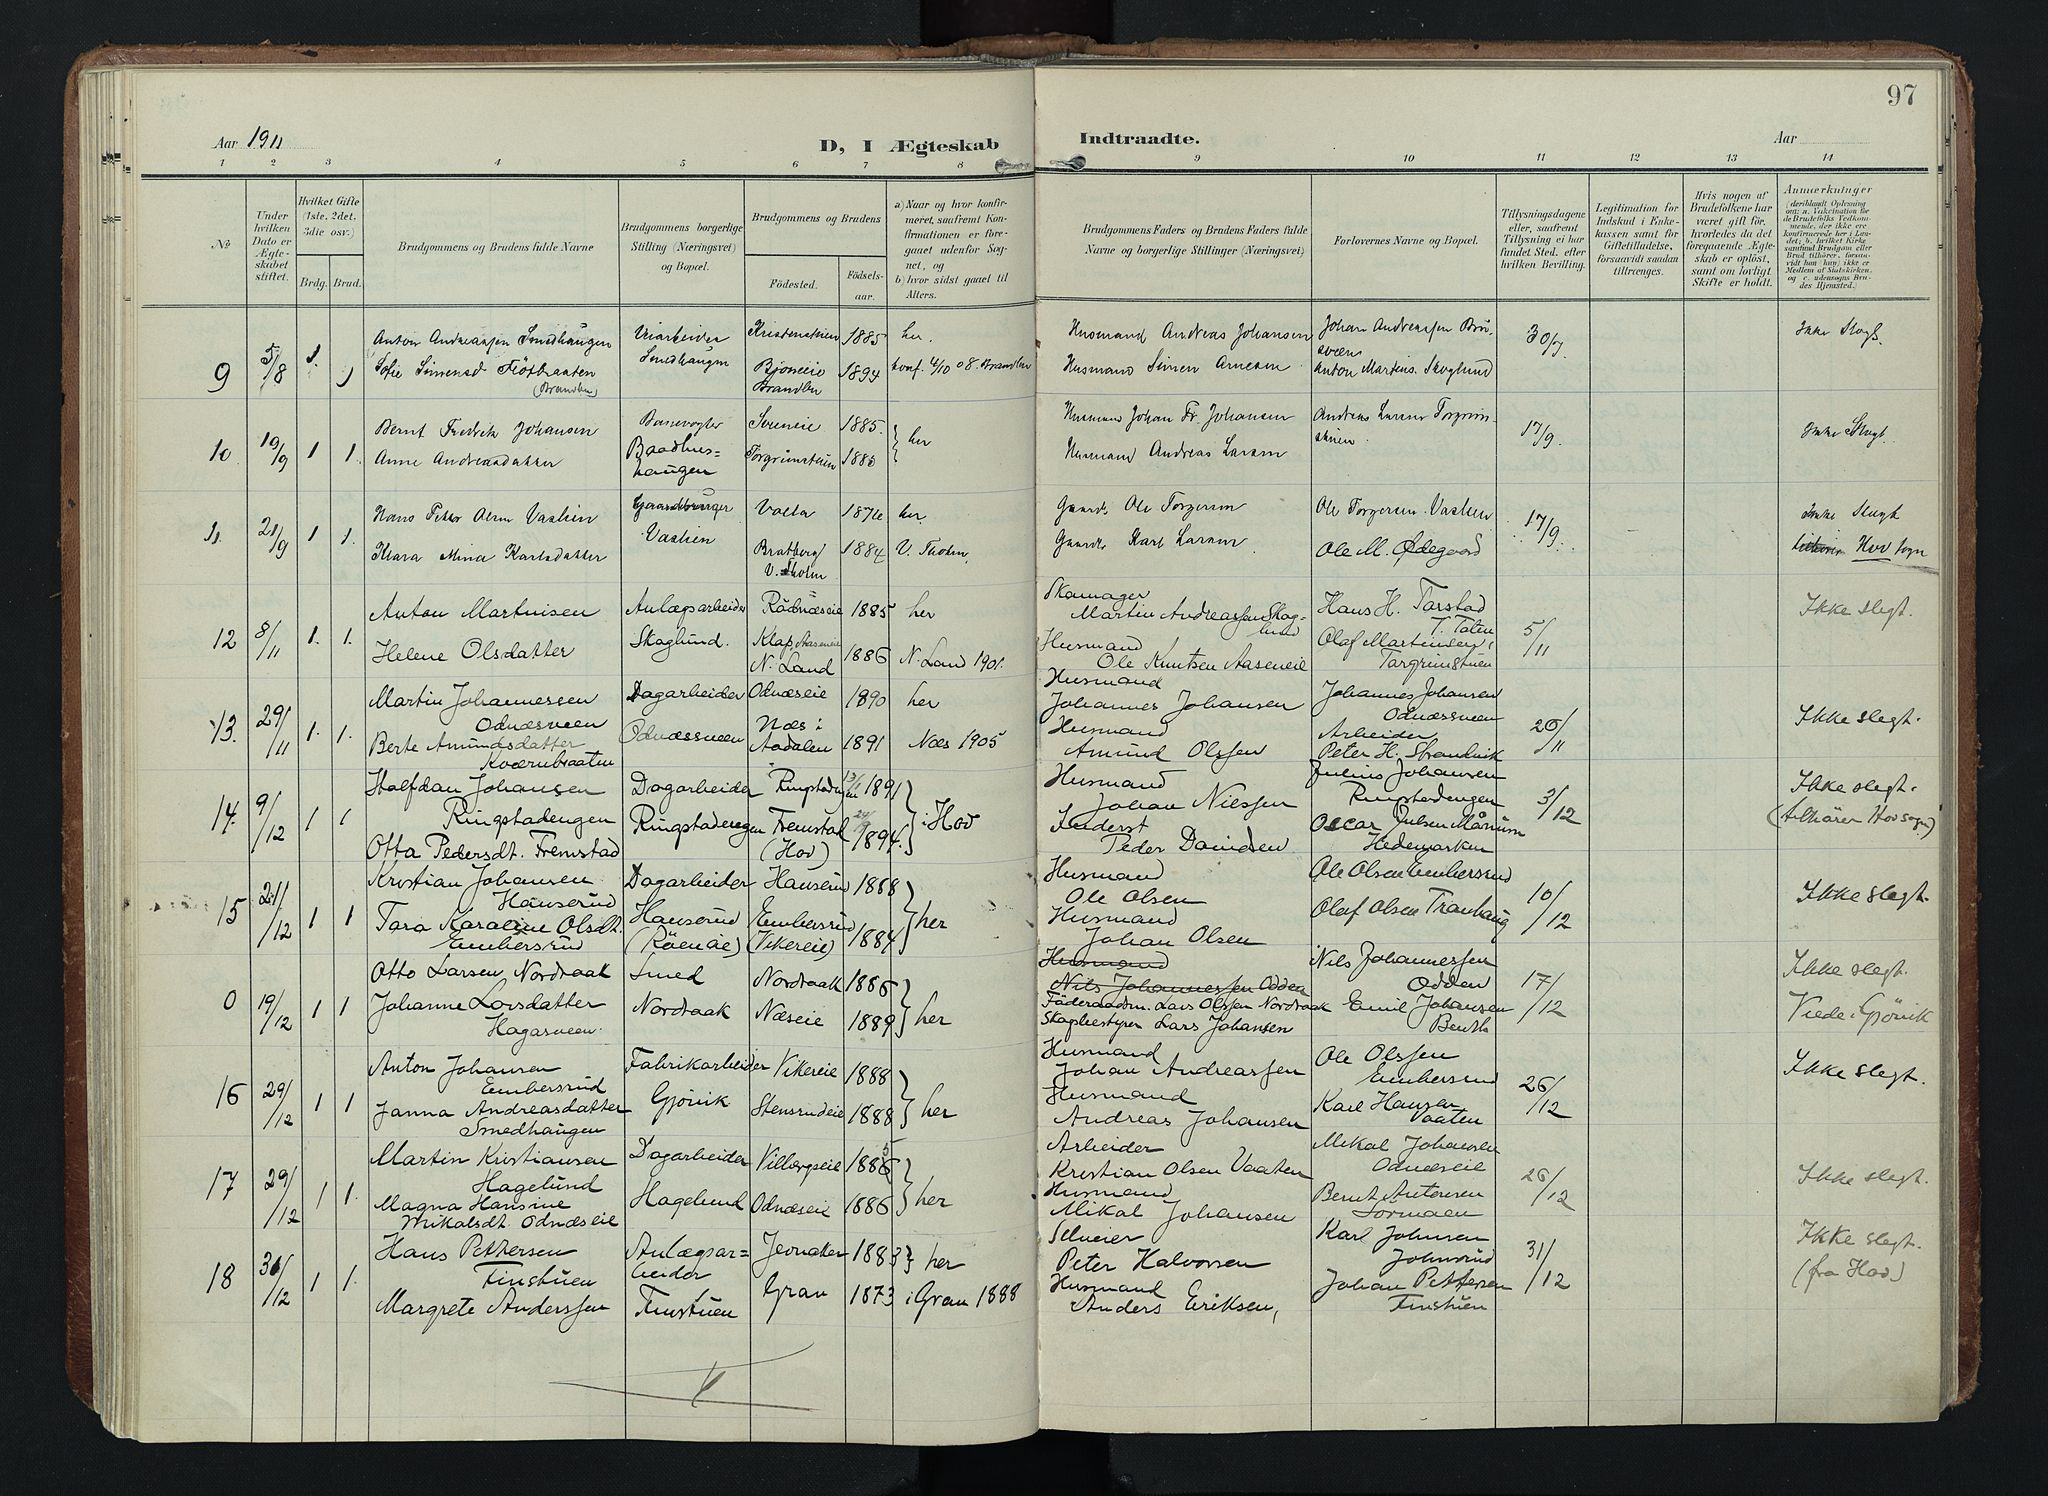 97
Aar 1911
D, I Ægteskab
Indtraadte.
Aar
1 2 3 4 5 6 7 8 9 10 11 12 13 14
No
Under hvilken Dato er Ægteskabet stiftet.
Hvilket Gifte (1ste. 2det. 3die osv.)
Brdg. Brud.
Brudgommens og Brudens fulde Navne
Brudgommens borgerlige Stilling (Næringsvei) og Bopæl.
Brudgommens og Brudens
Fødested.
Fødselsaar.
a) Naar og hvor konfirmeret, saafremt Konfirmationen er foregaaet udenfor Sognet, og
b) hvor sidst gaaet til Alters.
Brudgommens Faders og Brudens Faders fulde Navne og borgerlige Stillinger (Næringsvei)
Forlovernes Navne og Bopæl.
Tillysningsdagene eller, saafremt Tillysning ei har fundet Sted. efter hvilken Bevilling.
Legitimation for Indskud i Enkekassen samt for Giftetilladelse, forsaavidt saadan tiltrænges.
Hvis nogen af Brudefolkene har været gift før, hvorledes da det foregaaende Ægteskab er opløst, samt om lovligt Skifte er holdt.
Anmærkninger
9 5/8 1. 1
Anton Andreassen Smedhaugen
Smedhaugen
1885 her.
Husmand Andreas Johansen
30/7.
Ikke Slegt.
Sofie Simensd
(Brandbu)
Bjoneeie
Brandbu
1894 konf. 4/10 08. Brandbu
Husmand Simen Arnesen
Anton Martins. Skoglund
10. 19/9 1 1.
Bernt Fredrik Johansen
1885.
Husmand Johan Fr. Johansen
Andreas Larsen
17/9.
Ikke Slegt.
Anne Andreasdatter
Torgrimstuen
her
Husmand Andreas Larsen
11. 21/9 1 1.
Hans Petter Olsen Vaslien
Gaardbruger
Vaslien
1876 her.
Gaardb. Ole Torgersen
Ole Torgersen Vaslien
17/9.
Ikke Slegt
Klara Mina Karlsdatter
Bratberg
V. Tholm
1884 V. Tholm.
Gaardb. Karl Larsen
Ole M. Ødegaard
Hov sogn
12 8/11 1. 1.
Anton Martinisen
Anlægsarbeider
Skaglund.
Rødnæseie 1885 her
Skomager
Martin Andreassen Skaglund
Hans H. Tarstad
5/11
Ikke slegt.
Helene Olsdatter
Klap, Aaseneie
N. Land
1886 N. Land 1901.
Husmand
Ole Knutsen Aaseneie
Olaf Martinsen,
Targrimstuen
13. 29/11 1. 1.
Martin Johannessen
Odnæsveen
Dagarbeider
Odnæssveen
Odnæseie 1890 her
Husmand
Johannes Johansen
Johannes Johansen
Odnæssveen
20/11
Ikke slegt.
Berte Amundsdatter
Kværnbraaten
Næs i
Aadalen 1891 Næs 1905
Husmand
Amund Olssen
Arbeider
Peter H. Strandvik
14. 9/12 1 1
Halfdan Johansen
Ringstadengen
Dagarbeider
Ringstadengen
1891
i Hov
Husmand
Johan Nilssen
Julius Johansen
Ringstadengen
3/12
Ikke slegt.
(tilhører Hov sogn)
Otta Pedersdt. Fremstad
Fremstad
(Hov)
1894.
Inderst
Peder Davidsen
Oscar Julsen Mårum
Hedemarken
15 21/12 1 1
Kristian Johansen
Hanserud
Dagarbeider
Hanserud
(Röeneie)
Hanserud 1868
her
Husmand
Ole Olsen
Ole Olsen Embersrud
10/12
Ikke slegt.
Tara Karoline Olsdt.
Embersrud
Embersrud
(Vikereie)
1884
Husmand
Johan Olsen
Olaf Olsen Tranhaug
0 19/12 1 1
Otto Larsen Nordraak
Smed
Nordraak
Nordraak 1886
her
Husmand
Nils Johannessen Odden
Nils Johannessen
Odden
17/12
Ikke slegt.
Viede i Gjövik
Johanne Larsdatter
Hagasveen.
Næseie 1889
Föderaadsm. Lars Olssen Nordraak
Skogbestyrer Lars Johansen
Emil Johansen
16 29/12 1 1
Anton Johansen
Embersrud
Fabrikarbeider
Gjövik
Vikereie 1888
her
Husmand
Johan Andreassen
Ole Olssen
Embersrud
26/12
Ikke slegt.
Janna Andreasdatter
Smedhaugen
Stensrudeie 1888
Husmand
Andreas Johansen
Karl Hansen
Vaaten
17 29/12 1 1.
Martin Kristiansen
Hagelund
Dagarbeider
Hagelund
her
Arbeider
Kristian Olsen Vaaten
Mikal Johansen
Odnæseie
26/12
Ikke slegt.
Magna Hansine
Mikalsdt. Odnæseie
Odnæseie 1886
Husmand
Mikal Johansen
Bernt Antonsen
18 30/12 1 1.
Hans Pettersen
Finstuen
Anlægsarbeider
Finstuen
Jevnaker 1883 her
Selveier
Peter Halvorsen
Karl Johnsen
Johnsrud
31/12
Ikke slegt.
(fra Hov)
Margrete Anderssen
Gran 1873 i Gran 1888
Husmand
Anders Eriksen,
Johan Pettersen
Finstuen